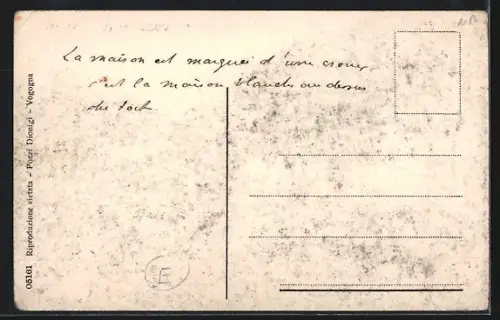 La maison est marquée d'une croix,
c'est la maison blanche au dessus
du toit
05161 Riproduzione vietata - Pozzi Dionigi - Vogogna
E